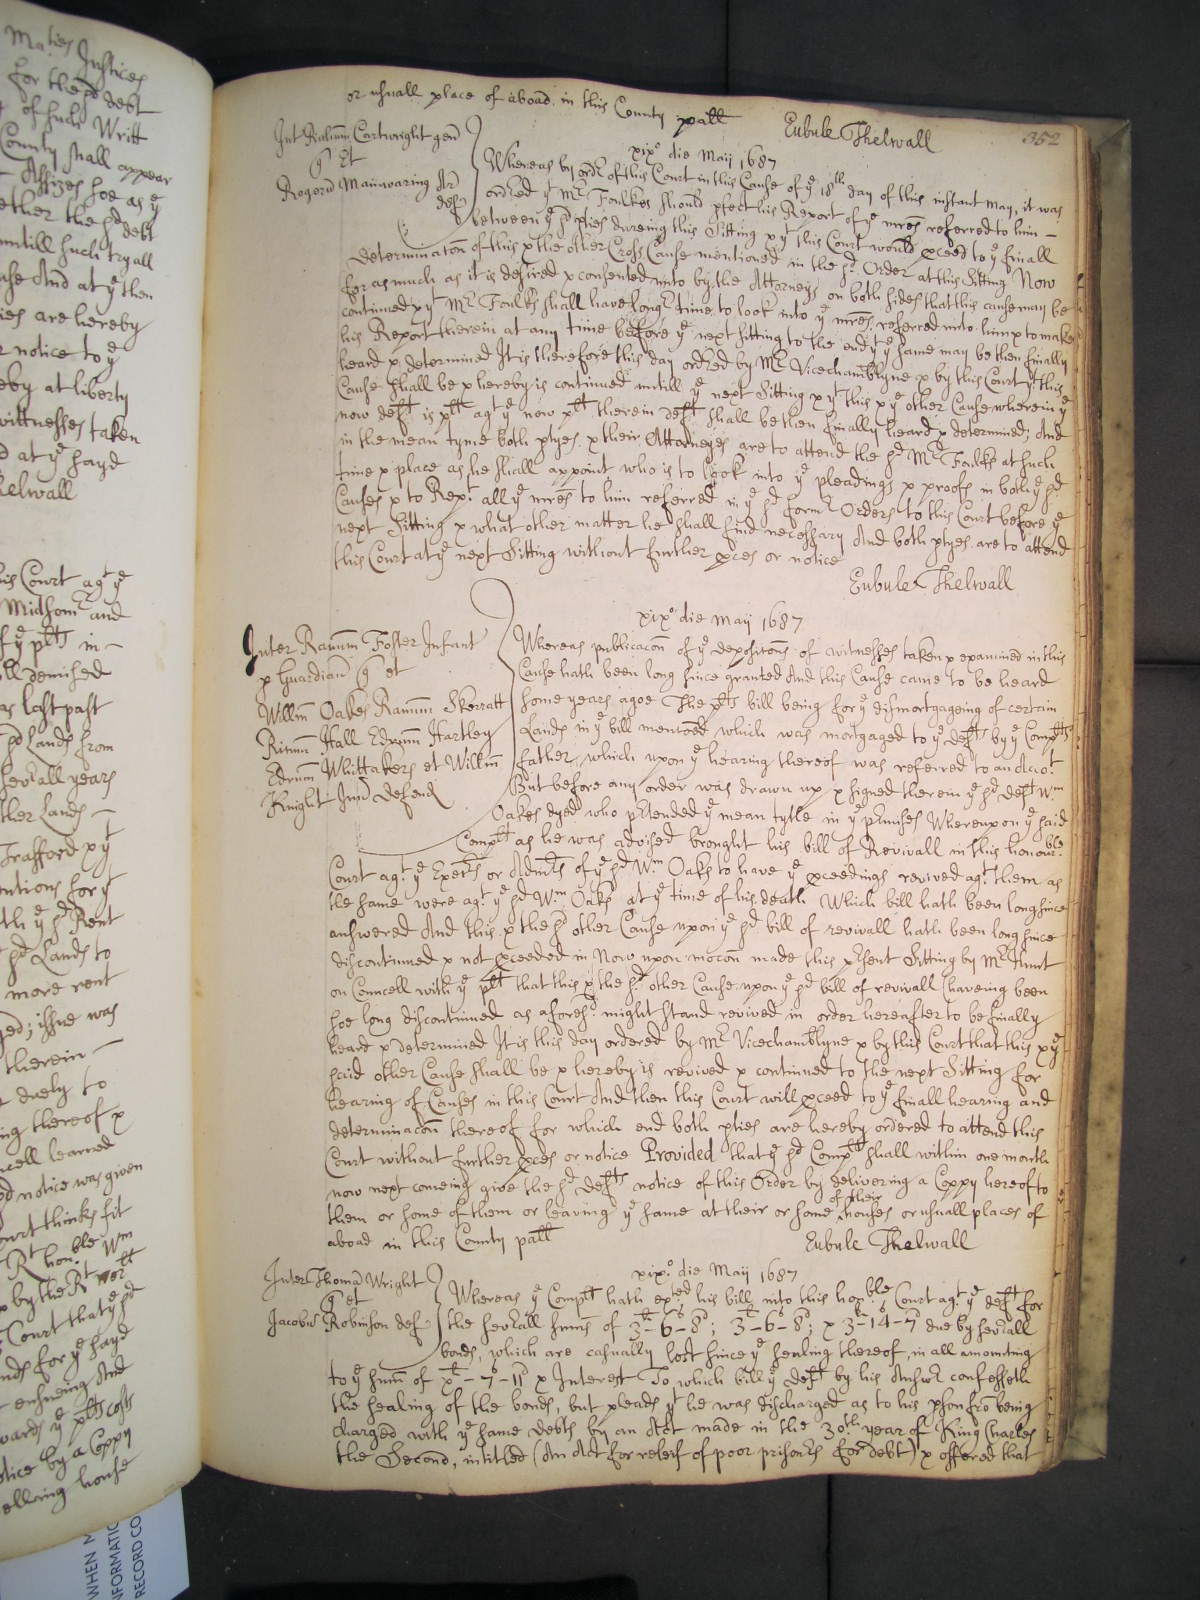 Maties Justices
for the sd debt
of such Writt
County shall appear
Assizes hee as ye
ether the sd debt
untill such tryall
And at ye then
ies are hereby
r notice to ye
eby at liberty
wittnesses taken
d at ye sayd
helwall
his Court agt ye
Midsomr and
f ye plts in —
ll demised
as last past
sd Lands from
severall years
ther Lands —
Trafford x yt
entions for yt
th ye sd Rent
sd Lands to
more rent
ged; issue was
therein —
duely to
ing thereof x
ncell learned
ed notice was given
ourt thinks fit
Rt honble Wm
x by the Rt worll
Court that ye sd
nds for ye sayd
ensueing And
wards ye plts costs
otice by a Coppy
elling house
352
or usuall place of aboad in this County pall
Eubule Thelwall
xixo die Maij 1687
Int Ricum Cartwright gen
q Et
Rogerū Mainwaring Ar
def
Whereas by ordr of this Court in this Cause of ye 18th day of this instant May, it was
ordred yt Mr Foulkes should pfect his Report of ye mres referred to him —
between ye sd pties dureing this Sitting x yt this Court would pceed to ye finall
determinaton of this x the other Cross Cause mentioned in the sd Order at this Sitting Now
for as much as it is desired x consented unto by the Attorneys on both sides that this cause may be
continued x yt Mr Foulks shall have longr time to look into ye mres referred unto him x to make
his Report therein at any time before ye next Sitting to the end yt ye same may be then finally
heard x determined It is therefore this day ordred by Mr Vicechamblyne x by this Court yt this
Cause shall be x hereby is continued untill ye next Sitting x yt this x ye other Cause wherein ye
now deft is plt agt ye now plt therein deft shall be then finally heard x determined; And
in the mean tyme both ptyes x their Attorneyes are to attend the sd Mr Foulks at such
time x place as he shall appoint who is to look into ye pleadings x proofs in both ye sd
Causes x to Rept all ye mres to him referred in ye sd formr Orders to this Court before ye
next Sitting x what other matter he shall find necessary And both ptyes are to attend
this Court at ye next Sitting without further pces or notice
Eubule Thelwall
xixo die Maij 1687
Inter Ranum Foster Infant
p Guardian q et
Willm Oakes Ranum Skerratt
Ricum Hall Edrum Hartley
Edrum Whittakers et Willm
Knight Junr Defend
Whereas publicacon of ye depositons of witnesses taken x examined in this
Cause hath been long since granted And this Cause came to be heard
some years agoe The plts bill being for ye dismortgageing of certain
Lands in ye bill menconed which was mortgaged to ye defts by ye Complts
father, which upon ye hearing thereof was referred to an Accot
But before any order was drawn up x signed therein ye sd deft Wm
Oakes dyed who ptended ye mean tytle in ye pmises Whereupon ye said
Complt as he was advised brought his bill of Revivall in this honoble
Court agt ye Exects or Admts of ye sd Wm Oaks to have ye pceedings revived agt them as
the same were agt ye sd Wm Oaks at ye time of his death Which bill hath been long since
answered And this x the sd other Cause upon ye sd bill of revivall hath been long since
discontinued x not pceeded in Now upon mocon made this psent Sitting by Mr Hunt
on Councell with ye plt that this x the sd other Cause upon ye sd bill of revivall (haveing been
soe long discontinued as aforesd might stand revived in order hereafter to be finally
heard x determined It is this day ordered by Mr Vicechamblyne x by this Court that this x ye
said other Cause shall be x hereby is revived x continued to the next Sitting for
hearing of Causes in this Court And then this Court will pceed to ye finall hearing and
determinacon thereof for which end both pties are hereby ordered to attend this
Court without further pces or notice Provided that ye sd Complt shall within one month
now next comeing give the sd defts notice of this Order by delivering a Coppy hereof to
them or some of them or leaving ye same at their or some of their houses or usuall places of
aboad in this County pall
Eubule Thelwall
xixo die Maij 1687
Inter Thomam Wright
q et
Jacobū Robinson def
Whereas ye Complt hath exted his bill into this honble Court agt ye deft for
the severall sums of 3l–6s–8d; 3l–6s–8d; x 3l–14s–7d due by severall
bonds, which are casually lost since ye sealing thereof, in all amounting
to ye sum of xl–7–11d x Interest To which bill ye deft by his Answr confesseth
the sealing of the bonds, but pleads yt he was discharged as to his pson fro being
charged with ye same debts by an Act made in the 30th year of King Charles
the Second, intitled (An Act for releif of poor prisonrs for debt) x offered that
WHEN M
NFORMATIC
RECORD CO